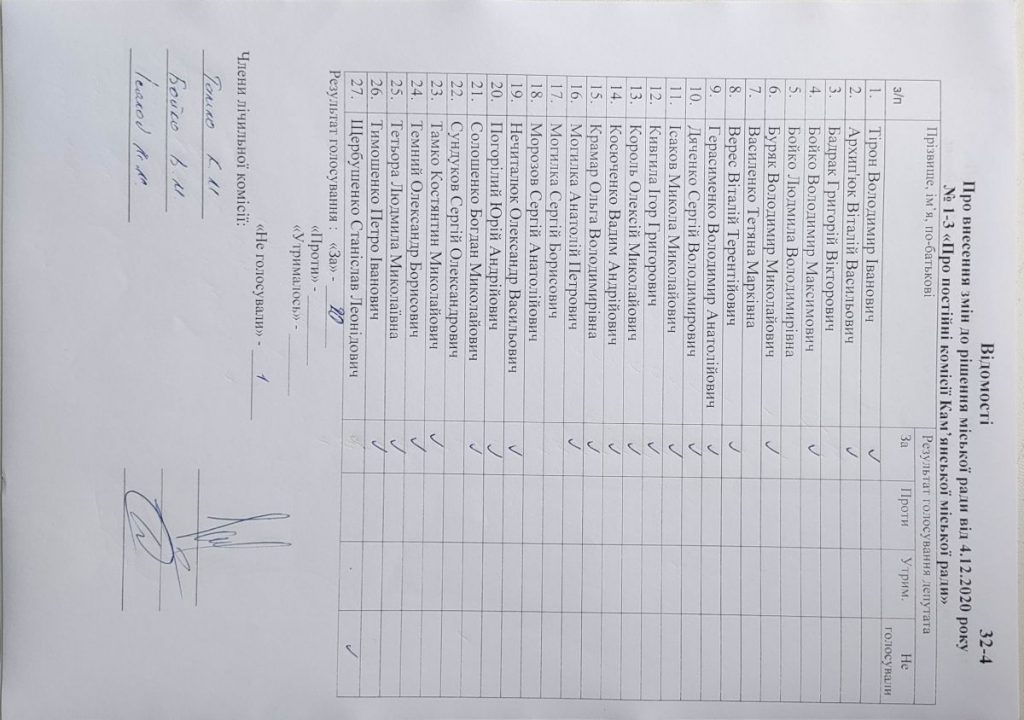 32-4
Відомості
Про внесення змін до рішення міської ради від 4.12.2020 року
№ 1-3 «Про постійні комісії Кам’янської міської ради»
з/п Прізвище, ім’я, по-батькові Результат голосування депутата
За Проти Утрим. Не голосували
1. Тірон Володимир Іванович ✓
2. Архип'юк Віталій Васильович ✓
3. Бадрак Григорій Вікторович
4. Бойко Володимир Максимович ✓
5. Бойко Людмила Володимирівна
6. Буряк Володимир Миколайович ✓
7. Василенко Тетяна Марківна
8. Верес Віталій Терентійович ✓
9. Герасименко Володимир Анатолійович ✓
10. Дяченко Сергій Володимирович ✓
11. Ісаков Микола Миколайович ✓
12. Кивгила Ігор Григорович ✓
13. Король Олексій Миколайович ✓
14. Косюченко Вадим Андрійович ✓
15. Крамар Ольга Володимирівна ✓
16. Могилка Анатолій Петрович ✓
17. Могилка Сергій Борисович
18. Морозов Сергій Анатолійович
19. Нечиталюк Олександр Васильович ✓
20. Погорілий Юрій Андрійович ✓
21. Солошенко Богдан Миколайович ✓
22. Сундуков Сергій Олександрович
23. Тамко Костянтин Миколайович ✓
24. Темний Олександр Борисович ✓
25. Тетьора Людмила Миколаївна ✓
26. Тимошенко Петро Іванович ✓
27. Щербушенко Станіслав Леонідович ✓
Результат голосування : «За» - 20
«Проти» - ______
«Утрималось» - ______
«Не голосували» - 1
Члени лічильної комісії:
Тамко К.М
Бойко В.М
Ісаков М.М.